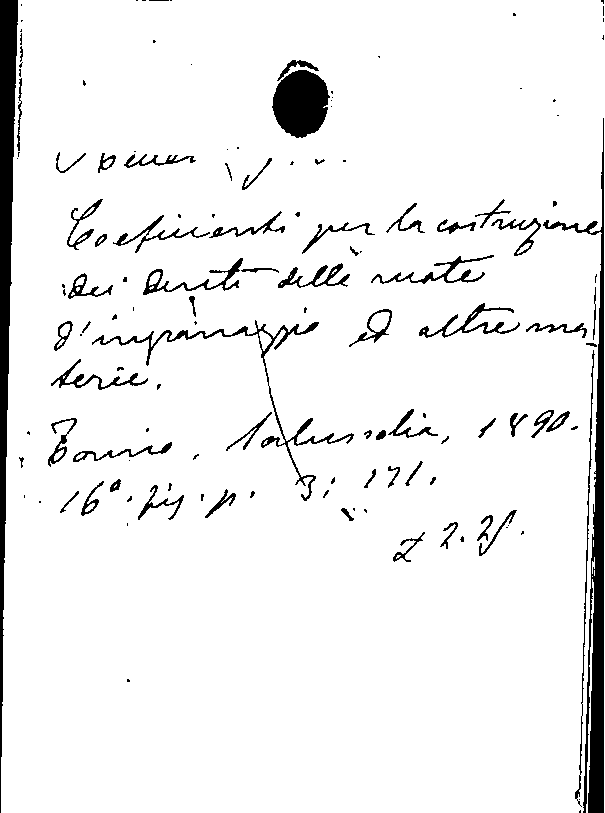 Coefficienti per la costruzione
dei denti delle ruote
d'ingranaggio ed altre ma-
terie.
Torino, 1890.
16°. fig. p. 3; 171.
£ 2.25.